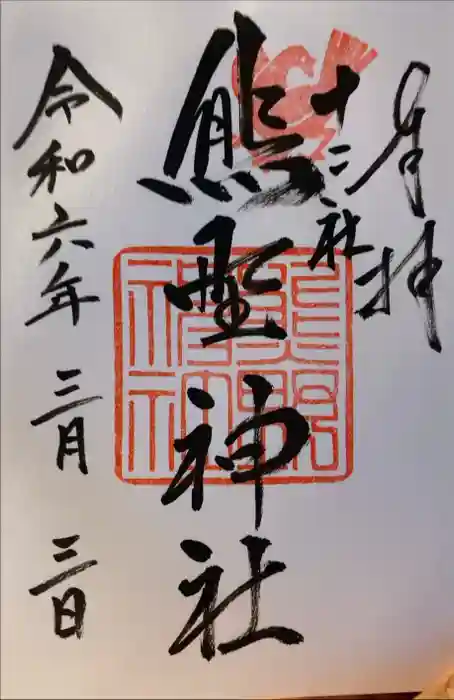 奉拝
十二社
熊野神社
令和六年 三月 三日
熊野
神社